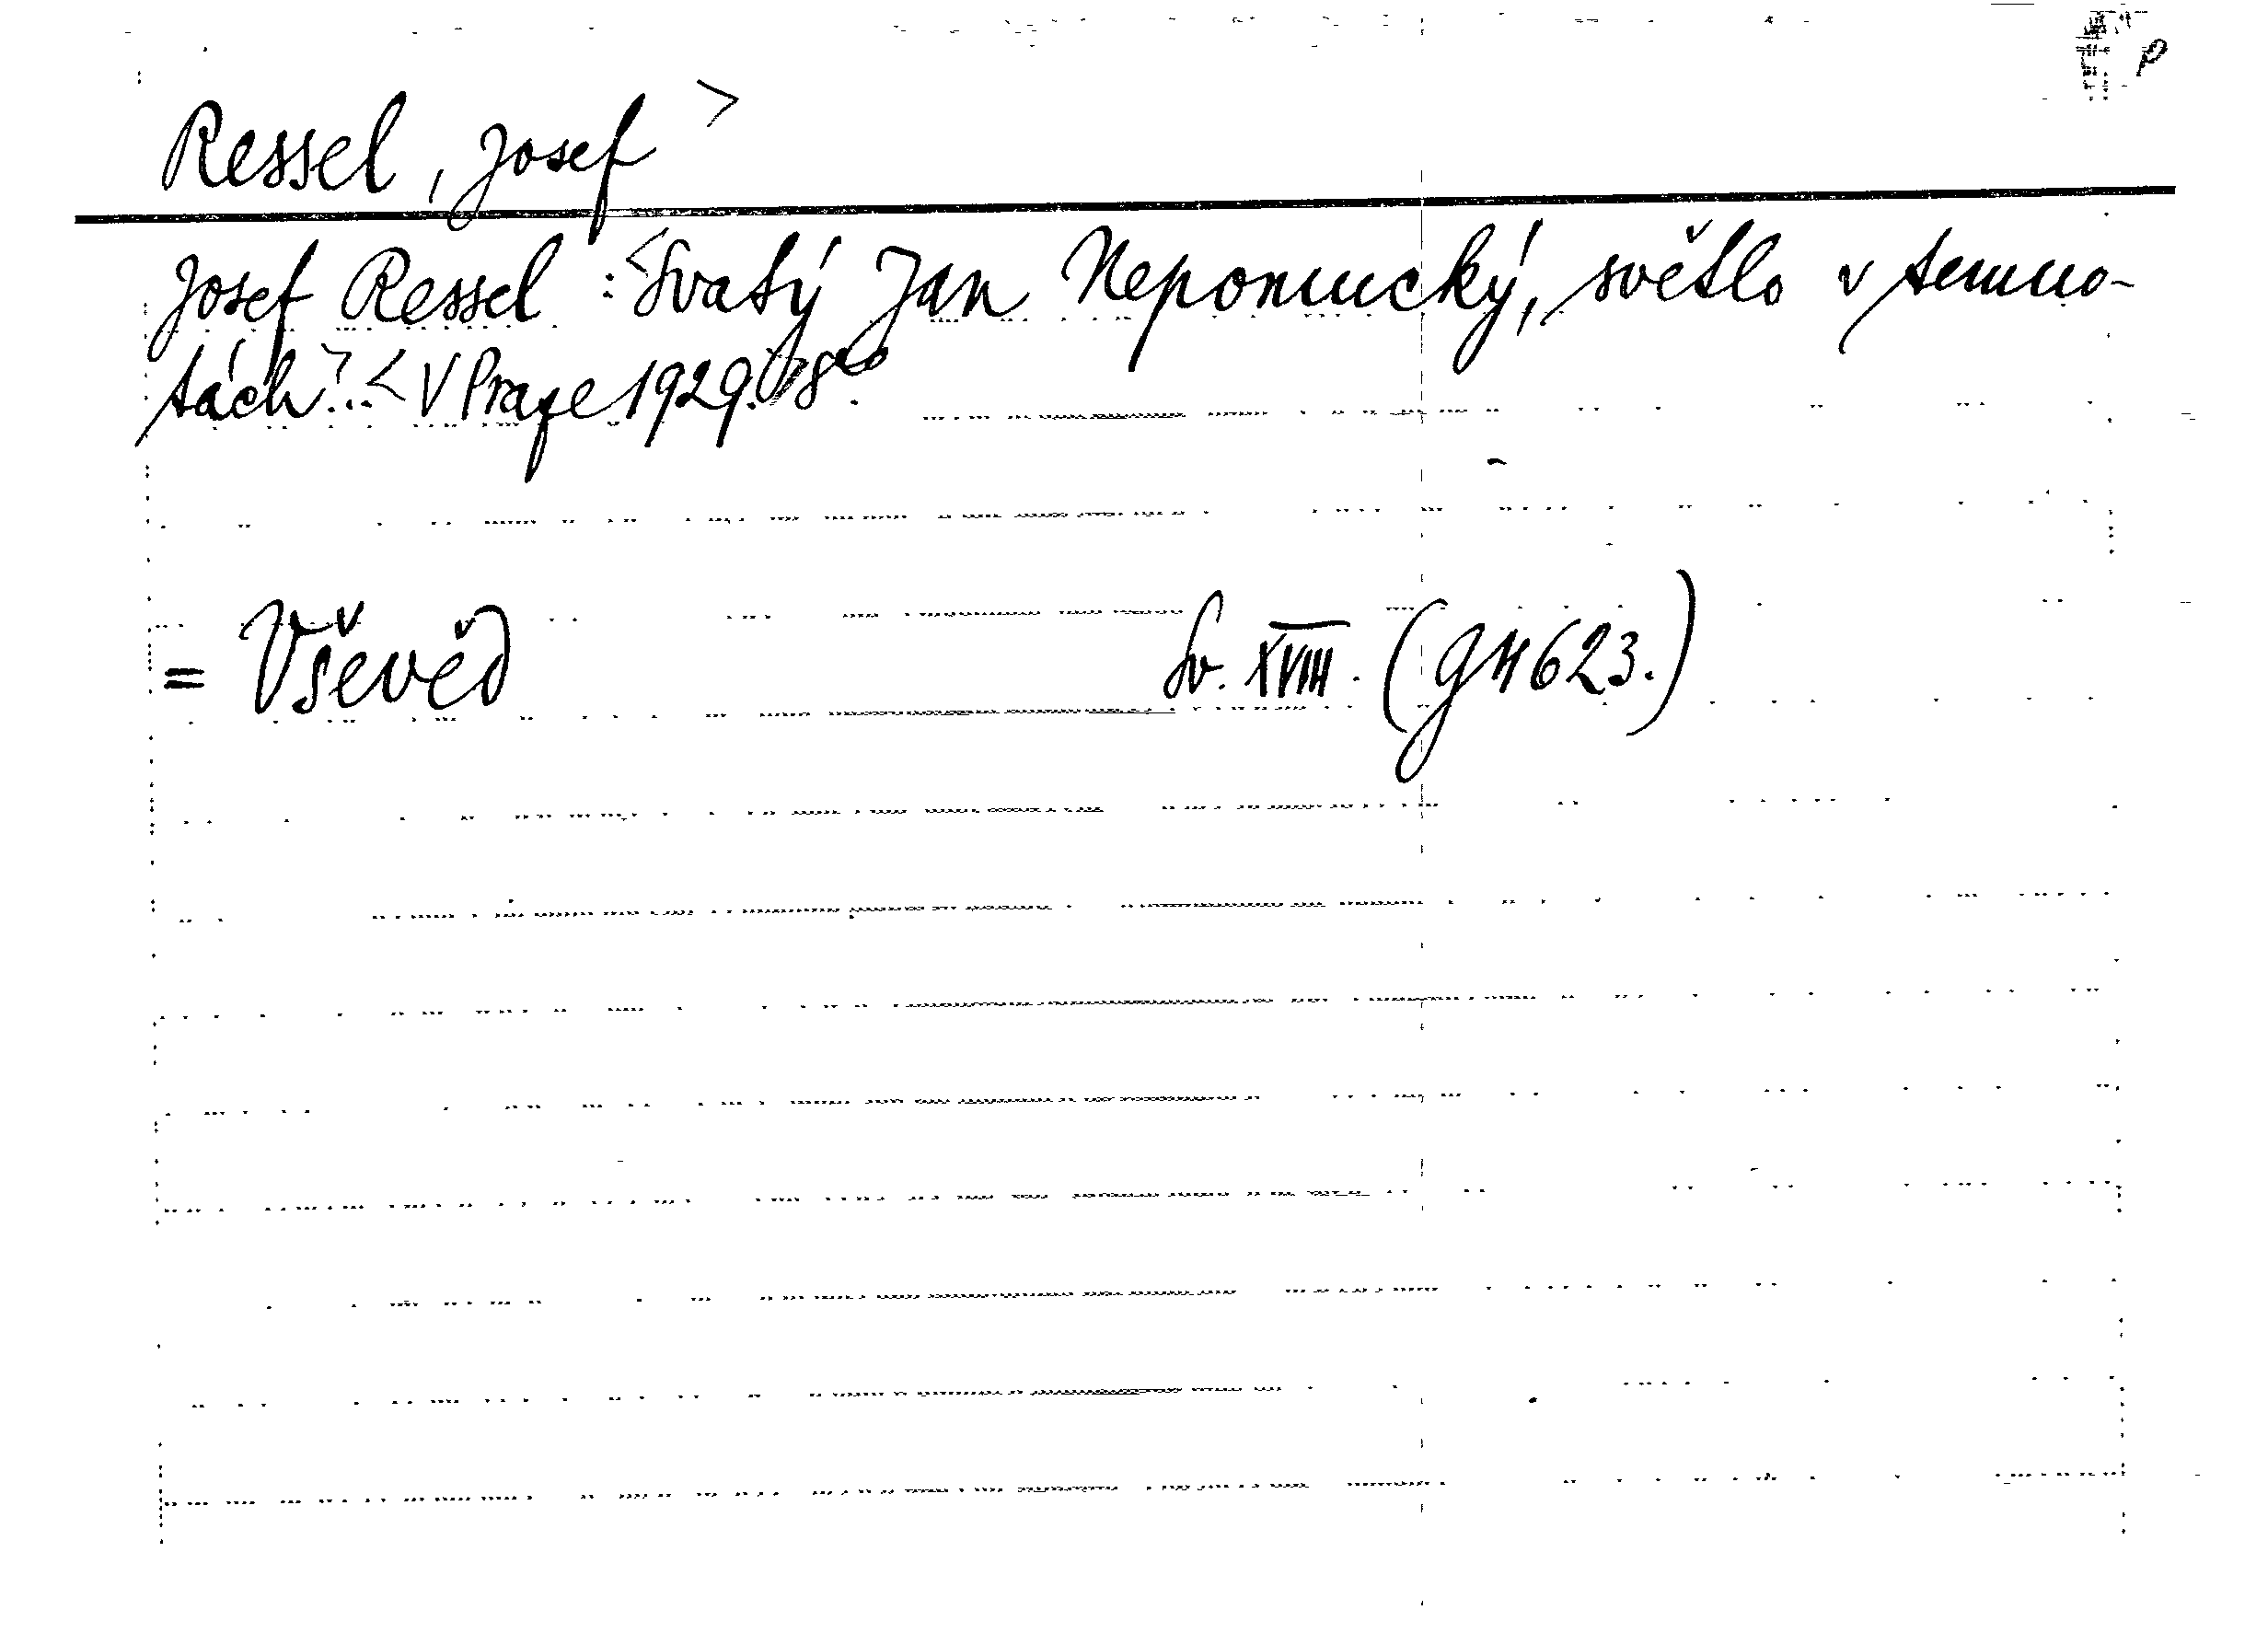 p
Ressel, Josef >
Josef Ressel : <Svatý Jan Nepomucký, světlo v temno-
tách>... < V Praze 1929. 8°.
= Vševěd Sv. XVIII. (9H623.)